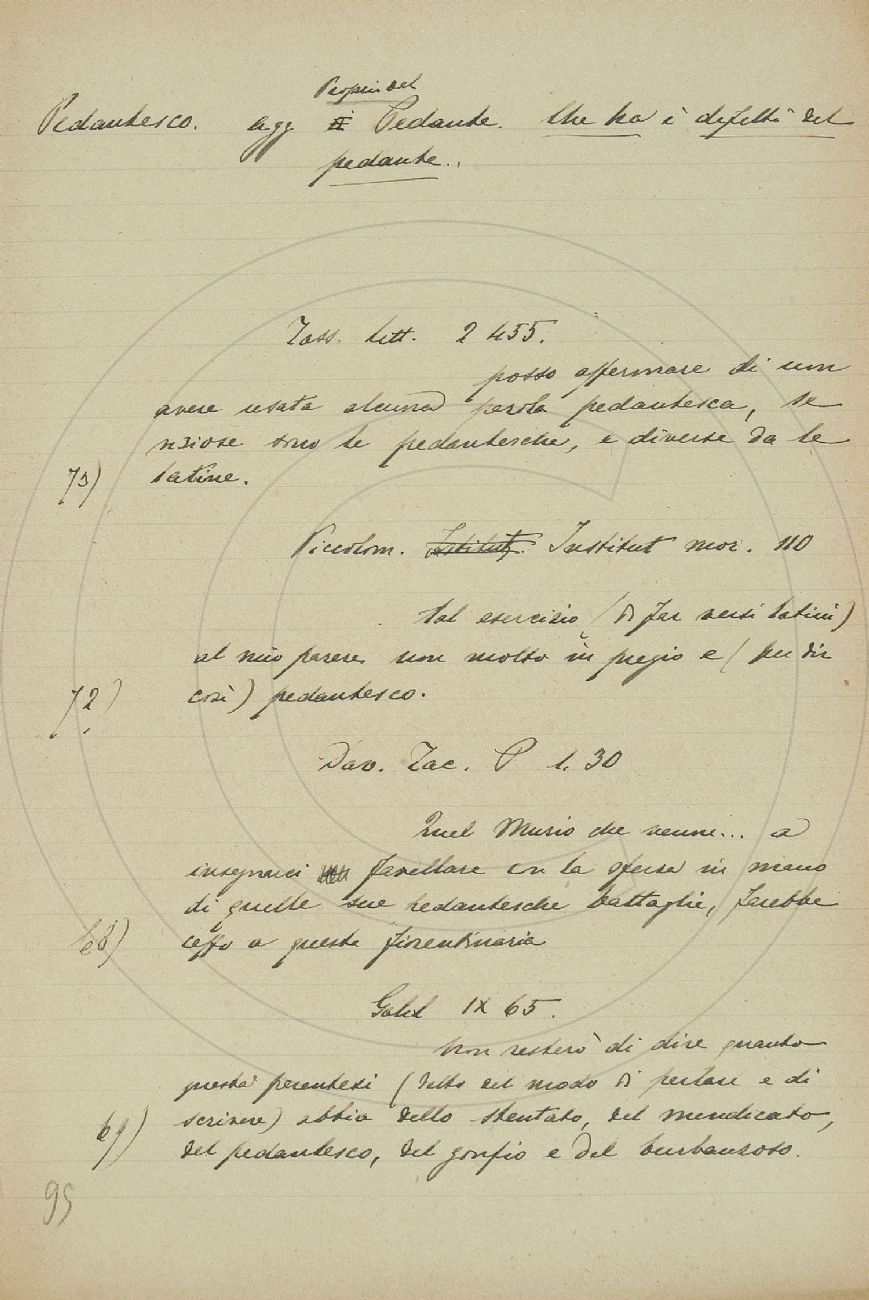 Propri del
Pedantesco. agg Pedante. Che ha i difetti del
pedante..
Tass. lett. 2 455.
posso affermare di non
avere usata alcuna parola pedantesca, se
viziose sono le pedantesche, e diverse da le
73) latine.
Piccolom. Institut. Institut mor. 110
tal esercizio (di far versi latini)
al mio parere non molto in pregio e (per dir
72) così) pedantesco.
Dav. Tac. P l. 30
Quel Muzio che venne... a
insegnarci favellare con la sferza in mano
di quelle sue pedantesche battaglie, farebbe
68) ceffo a questa fiorentinaria
Galil IX 65.
Non resterò di dire quanto
questa parentesi (detto del modo di parlare e di
69) scrivere) abbia dello stentato, del mendicato,
del pedantesco, del gonfio e del burbanzoso.
95